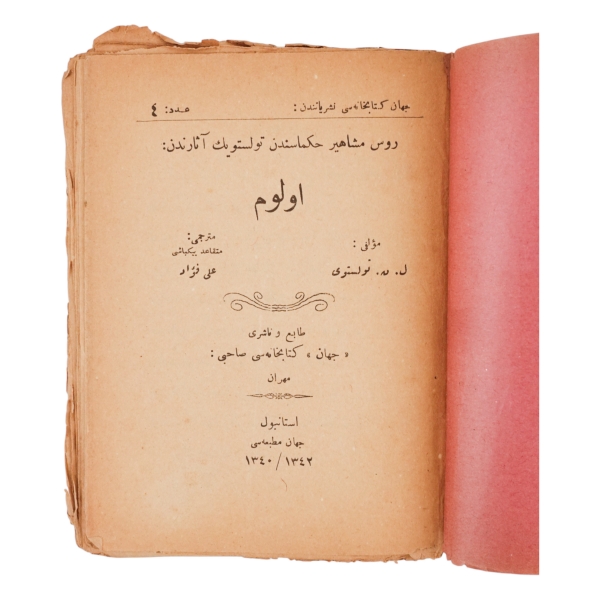 جهان كتابخانه‌سی نشریاتندن : عدد: ٤
روس مشاهیر حكماسندن تولستویك آثارندن:
اولوم
مؤلفی : مترجمی:
متقاعد بیكباشی
ل. ن. تولستوی علی فؤاد
طابع و ناشری
« جهان » كتابخانه‌سی صاحبی :
مهران
استانبول
جهان مطبعه‌سی
١٣٤٢ / ١٣٤٠